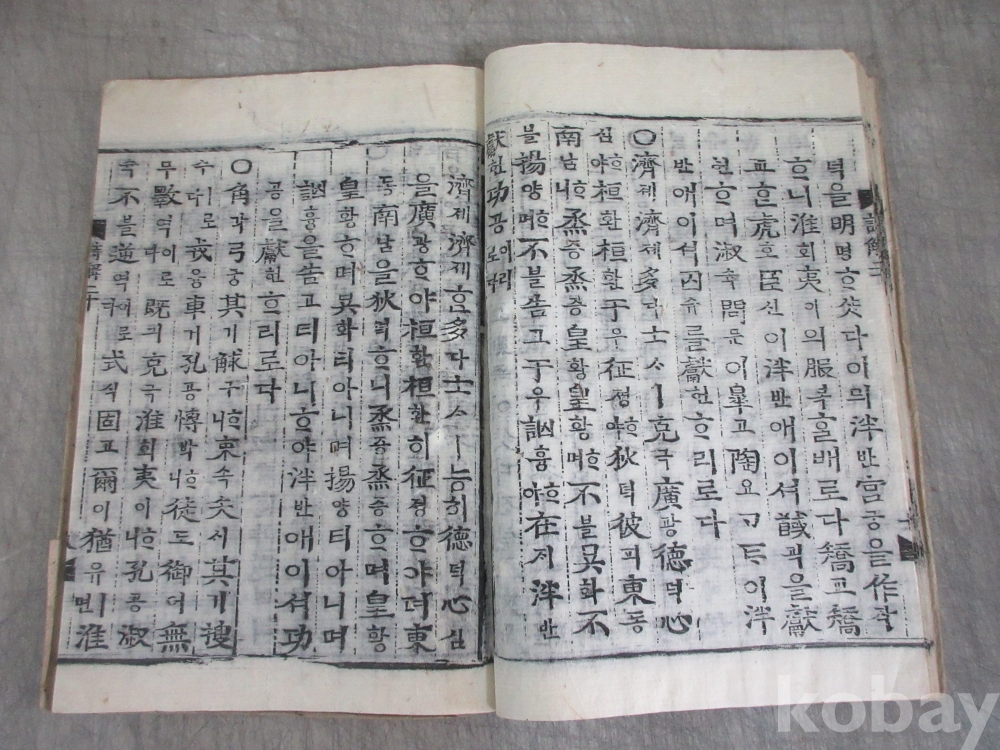 덕을明명ᄒᆞ샷다이믜泮반宮궁을作작
ᄒᆞ니淮회夷이의服복ᄒᆞᆯ배로다矯교矯
교ᄒᆞᆫ虎호臣신이泮반애이셔馘괵을獻
헌ᄒᆞ며淑슉問문이皐고陶요ᄀᆞᄐᆞ이泮
반애이셔囚슈를獻헌ᄒᆞ리로다
○濟졔濟졔多다士ᄉᆞㅣ克극廣광德덕心
심ᄒᆞ야桓환桓환于우征졍ᄒᆞ야狄뎍彼피東동
南남ᄒᆞ니烝증烝증皇황皇황ᄒᆞ며不블吳화不
블揚양ᄒᆞ며不블告고于우訩흉ᄒᆞ야在ᄌᆡ泮반
獻헌功공이리로다
濟졔濟졔ᄒᆞᆫ多다士ᄉᆞㅣ능히德덕心심
을廣광ᄒᆞ야桓환桓환히征졍ᄒᆞ야뎌東
동南남을狄뎍ᄒᆞ니烝증烝증ᄒᆞ며皇황
皇황ᄒᆞ며吳화티아니며揚양티아니며
訩흉을告고티아니ᄒᆞ야泮반애이셔功
공을獻헌ᄒᆞ리로다
○角각弓궁其기觩구ᄒᆞ니束속矢시其기搜
수ㅣ로다戎융車거孔공博박ᄒᆞ니徒도御어無
무斁역이로다旣긔克극淮회夷이ᄒᆞ니孔공淑
슉不블逆역이로다式식固고爾이猶유ㅣ면淮
詩解二十